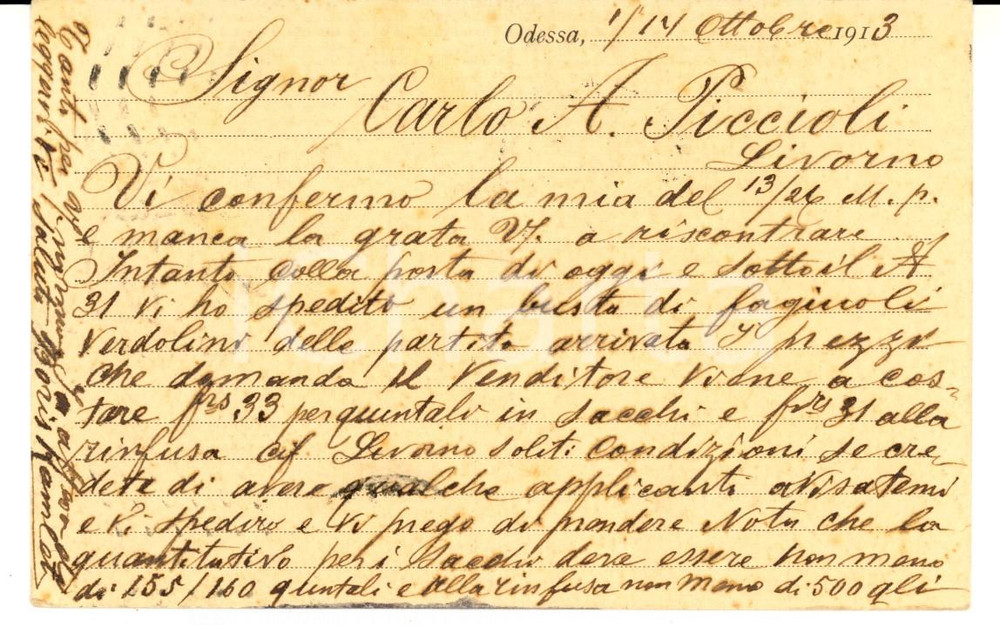 Odessa, 1/14 Ottobre 1913
Signor
Carlo A. Piccioli
Livorno
Vi confermo la mia del 13/26 M. p.
e manca la grata Vs. a riscontrare
Intanto colla posta di oggi e sotto il A
31 vi ho spedito un busta di fagiuoli
Verdolini delle partite arrivata I prezzi
che domanda il Venditore viene a cos-
tare frs 33 per quintali in sacchi e frs 31 alla
rinfusa cif Livorno soliti condizioni se cre-
dete di avere qualche applicanti avisatemi
e Vi spediro e Vi prego di prendere Nota che la
quantitativo per i sacchi deve essere non meno
di 155/160 quintali e alla rinfusa non meno di 500 qli
Tanto per
saluto Boris